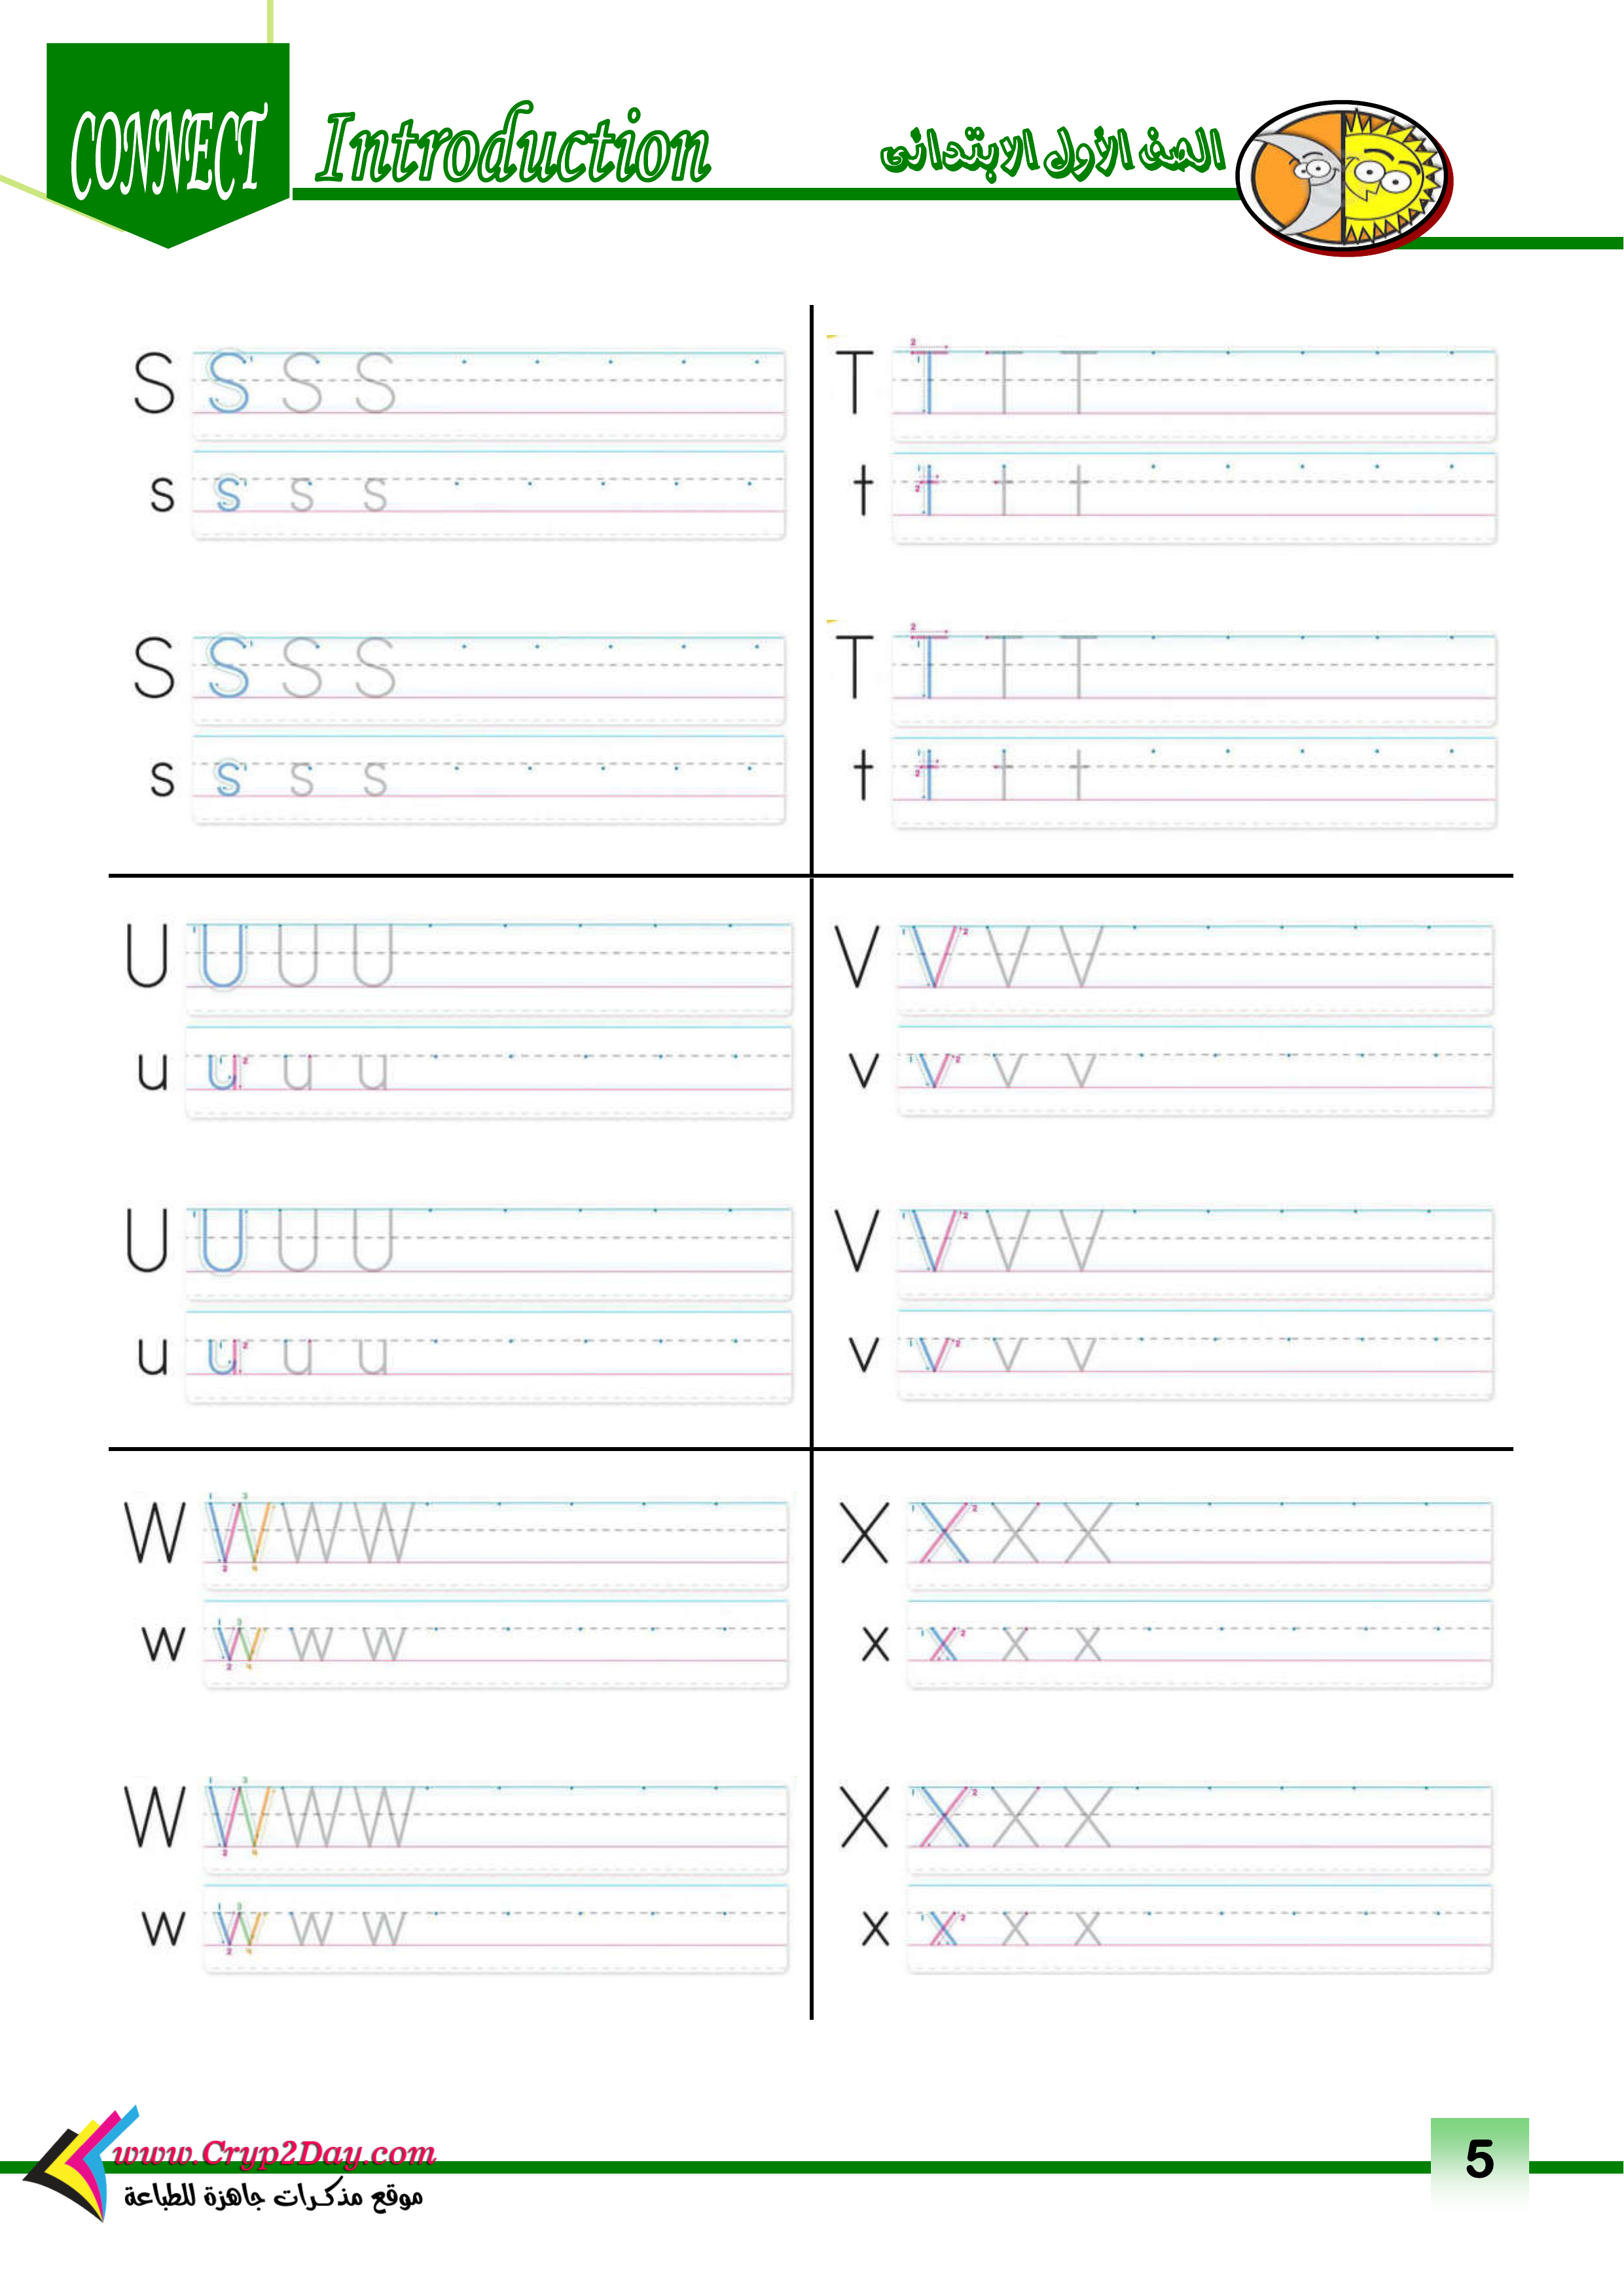 CONNECT
Introduction
الصف الأول الابتدائى
S S S S
s s s s
S S S S
s s s s
T T T T
t t t t
T T T T
t t t t
U U U U
u u u u
U U U U
u u u u
V V V V
v v v v
V V V V
v v v v
W W W W
w w w w
W W W W
w w w w
X X X X
x x x x
X X X X
x x x x
www.Cryp2Day.com
موقع مذكرات جاهزة للطباعة
5